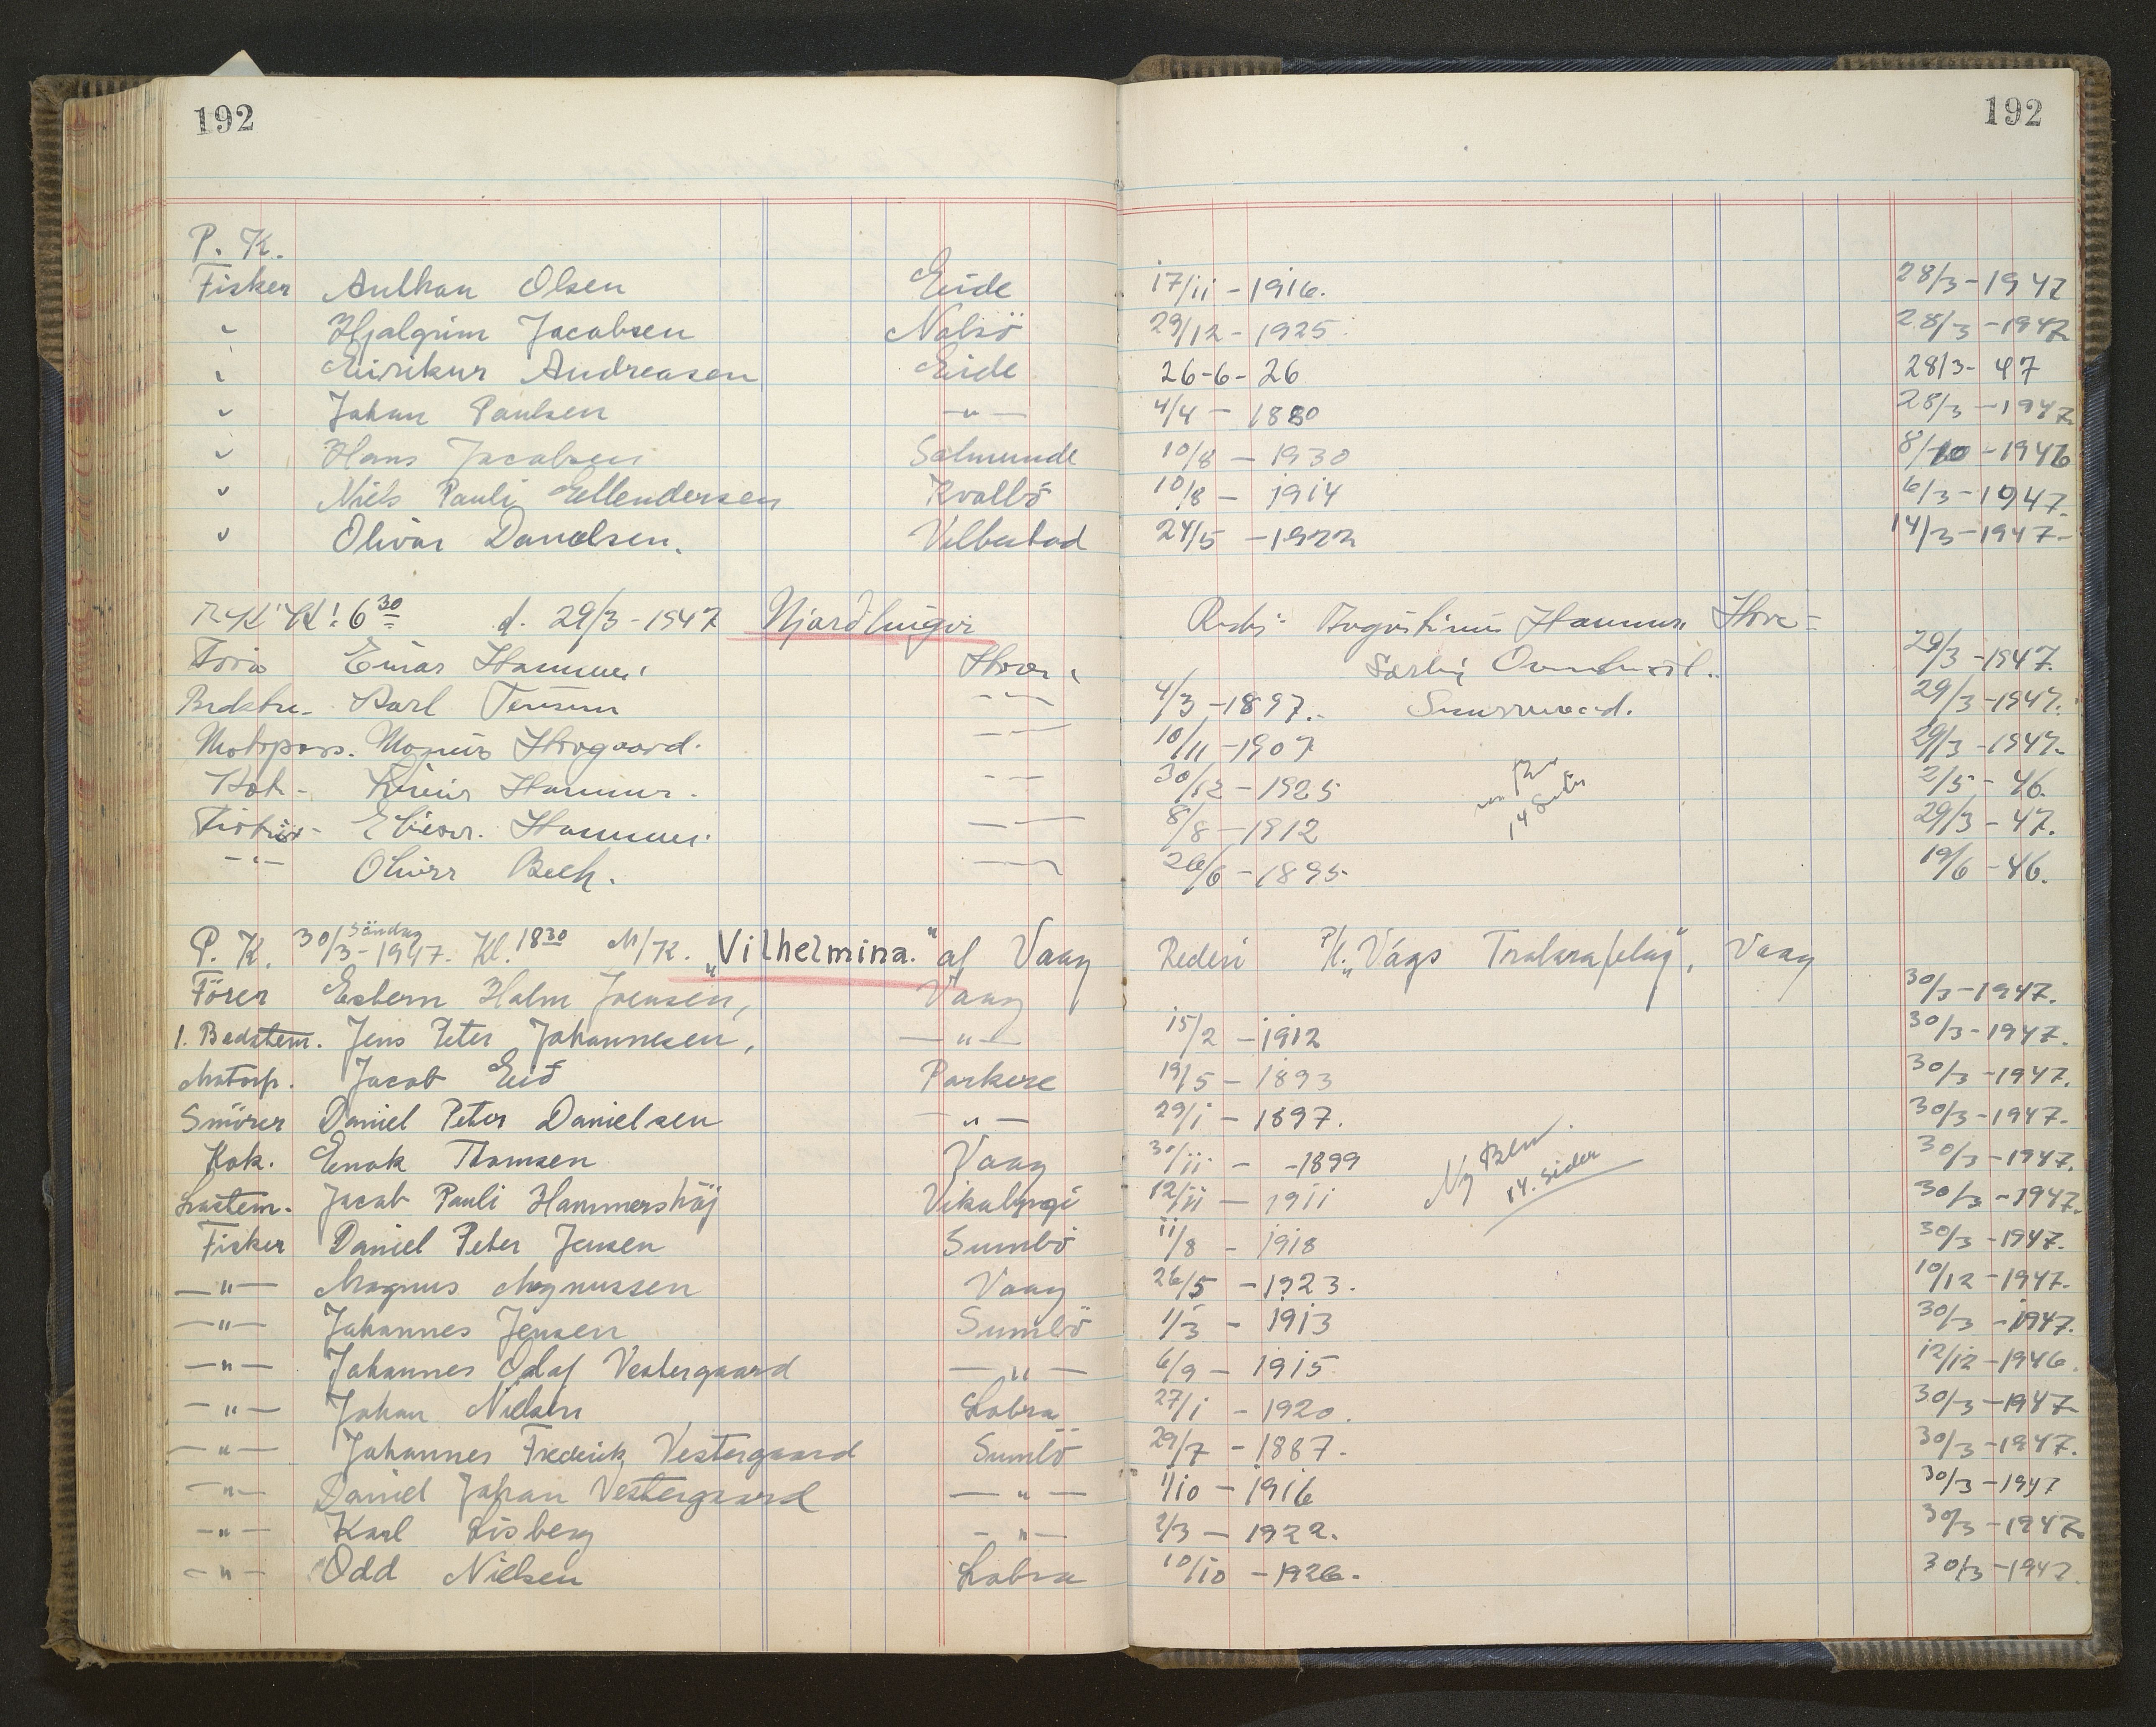 192 192
P. K.
Fisker Aulhan Olsen Eide 17/11 - 1916. 28/3 - 1947
" Hjalgrim Jacobsen Nolsö 29/12 - 1925. 28/3 - 1947
" Eirikur Andreasen Eide 26-6-26 28/3- 47
" Johan Paulsen -"- 4/4 - 1880 28/3 - 1947
" Hans Jacobsen Salmunde 10/8 - 1930 8/10 - 1946
" Niels Pauli Ellendersen Kvalbö 10/8 - 1914 6/3 - 1947.
" Olivar Danielsen. Velbestad 24/5 - 1922 14/3 - 1947-
Kl! 6 30 d. 29/3 - 1947 Hove
Einar Hammer 29/3 - 1947.
Karl -"- 4/3 - 1897. 29/3 - 1947.
Motorpas. Magnus Hovgaard. -"- 10/11 - 1907 29/3 - 1947.
Kok - Hammer. -"- 30/12 - 1925 2/5 - 46.
Fisker - Hammer. -"- 8/8 - 1912 14 Sider 29/3 - 47.
-"- Oliver Bech. -"- 26/6 - 1895. 19/6 - 46.
P. K. 30/3 - 1947. Söndag Kl. 18 30 M/K. "Vilhelmina." af Vaag Rederi P/K. "Vágs Tralarafelag", Vaag
Förer Esbern Holm Joensen, Vaag 30/3 - 1947.
1. Bedstem. Jens Peter Johannesen, -"- 15/2 - 1912 30/3 - 1947.
Motorp. Jacob Eid Porkere 19/5 - 1893 30/3 - 1947.
Smörer Daniel Peter Danielsen -"- 29/1 - 1897. 30/3 - 1947.
Kok. Enok Thomsen Vaag 30/11 - -1899 Ny Blm. 30/3 - 1947.
Lastem. Jacob Pauli Hammershöj Vikabyrgi 12/11 - 1911 14. sider 30/3 - 1947.
Fisker Daniel Peter Jensen Sumbö 11/8 - 1918 30/3 - 1947.
-"- Magnus Magnussen Vaag 26/5 - 1923. 10/12 - 1947.
-"- Johannes Jensen Sumbö 1/3 - 1913 30/3 - 1947.
-"- Johannes Olaf Vestergaard -"- 6/9 - 1915 12/12 - 1946.
-"- Johan Nielsen Lobra 27/1 - 1920. 30/3 - 1947
-"- Johannes Frederik Vestergaard Sumbö 29/7 - 1887. 30/3 - 1947.
-"- Daniel Johan Vestergaard -"- 1/10 - 1916 30/3 - 1947
-"- Karl Lisberg -"- 2/3 - 1922. 30/3 - 1947.
-"- Odd Nielsen Lobra 10/10 - 1926. 30/3 - 1947.